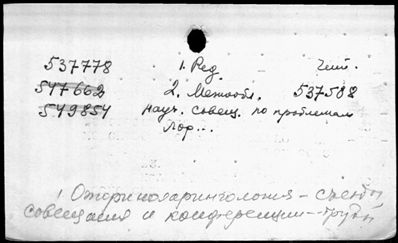 537778 1. Ред. чит.
547662 2. Межобл. 537508
549854 науч. совещ. по проблемам
лор...
1 Оториноларингология - съезды
совещания и конференции - труды